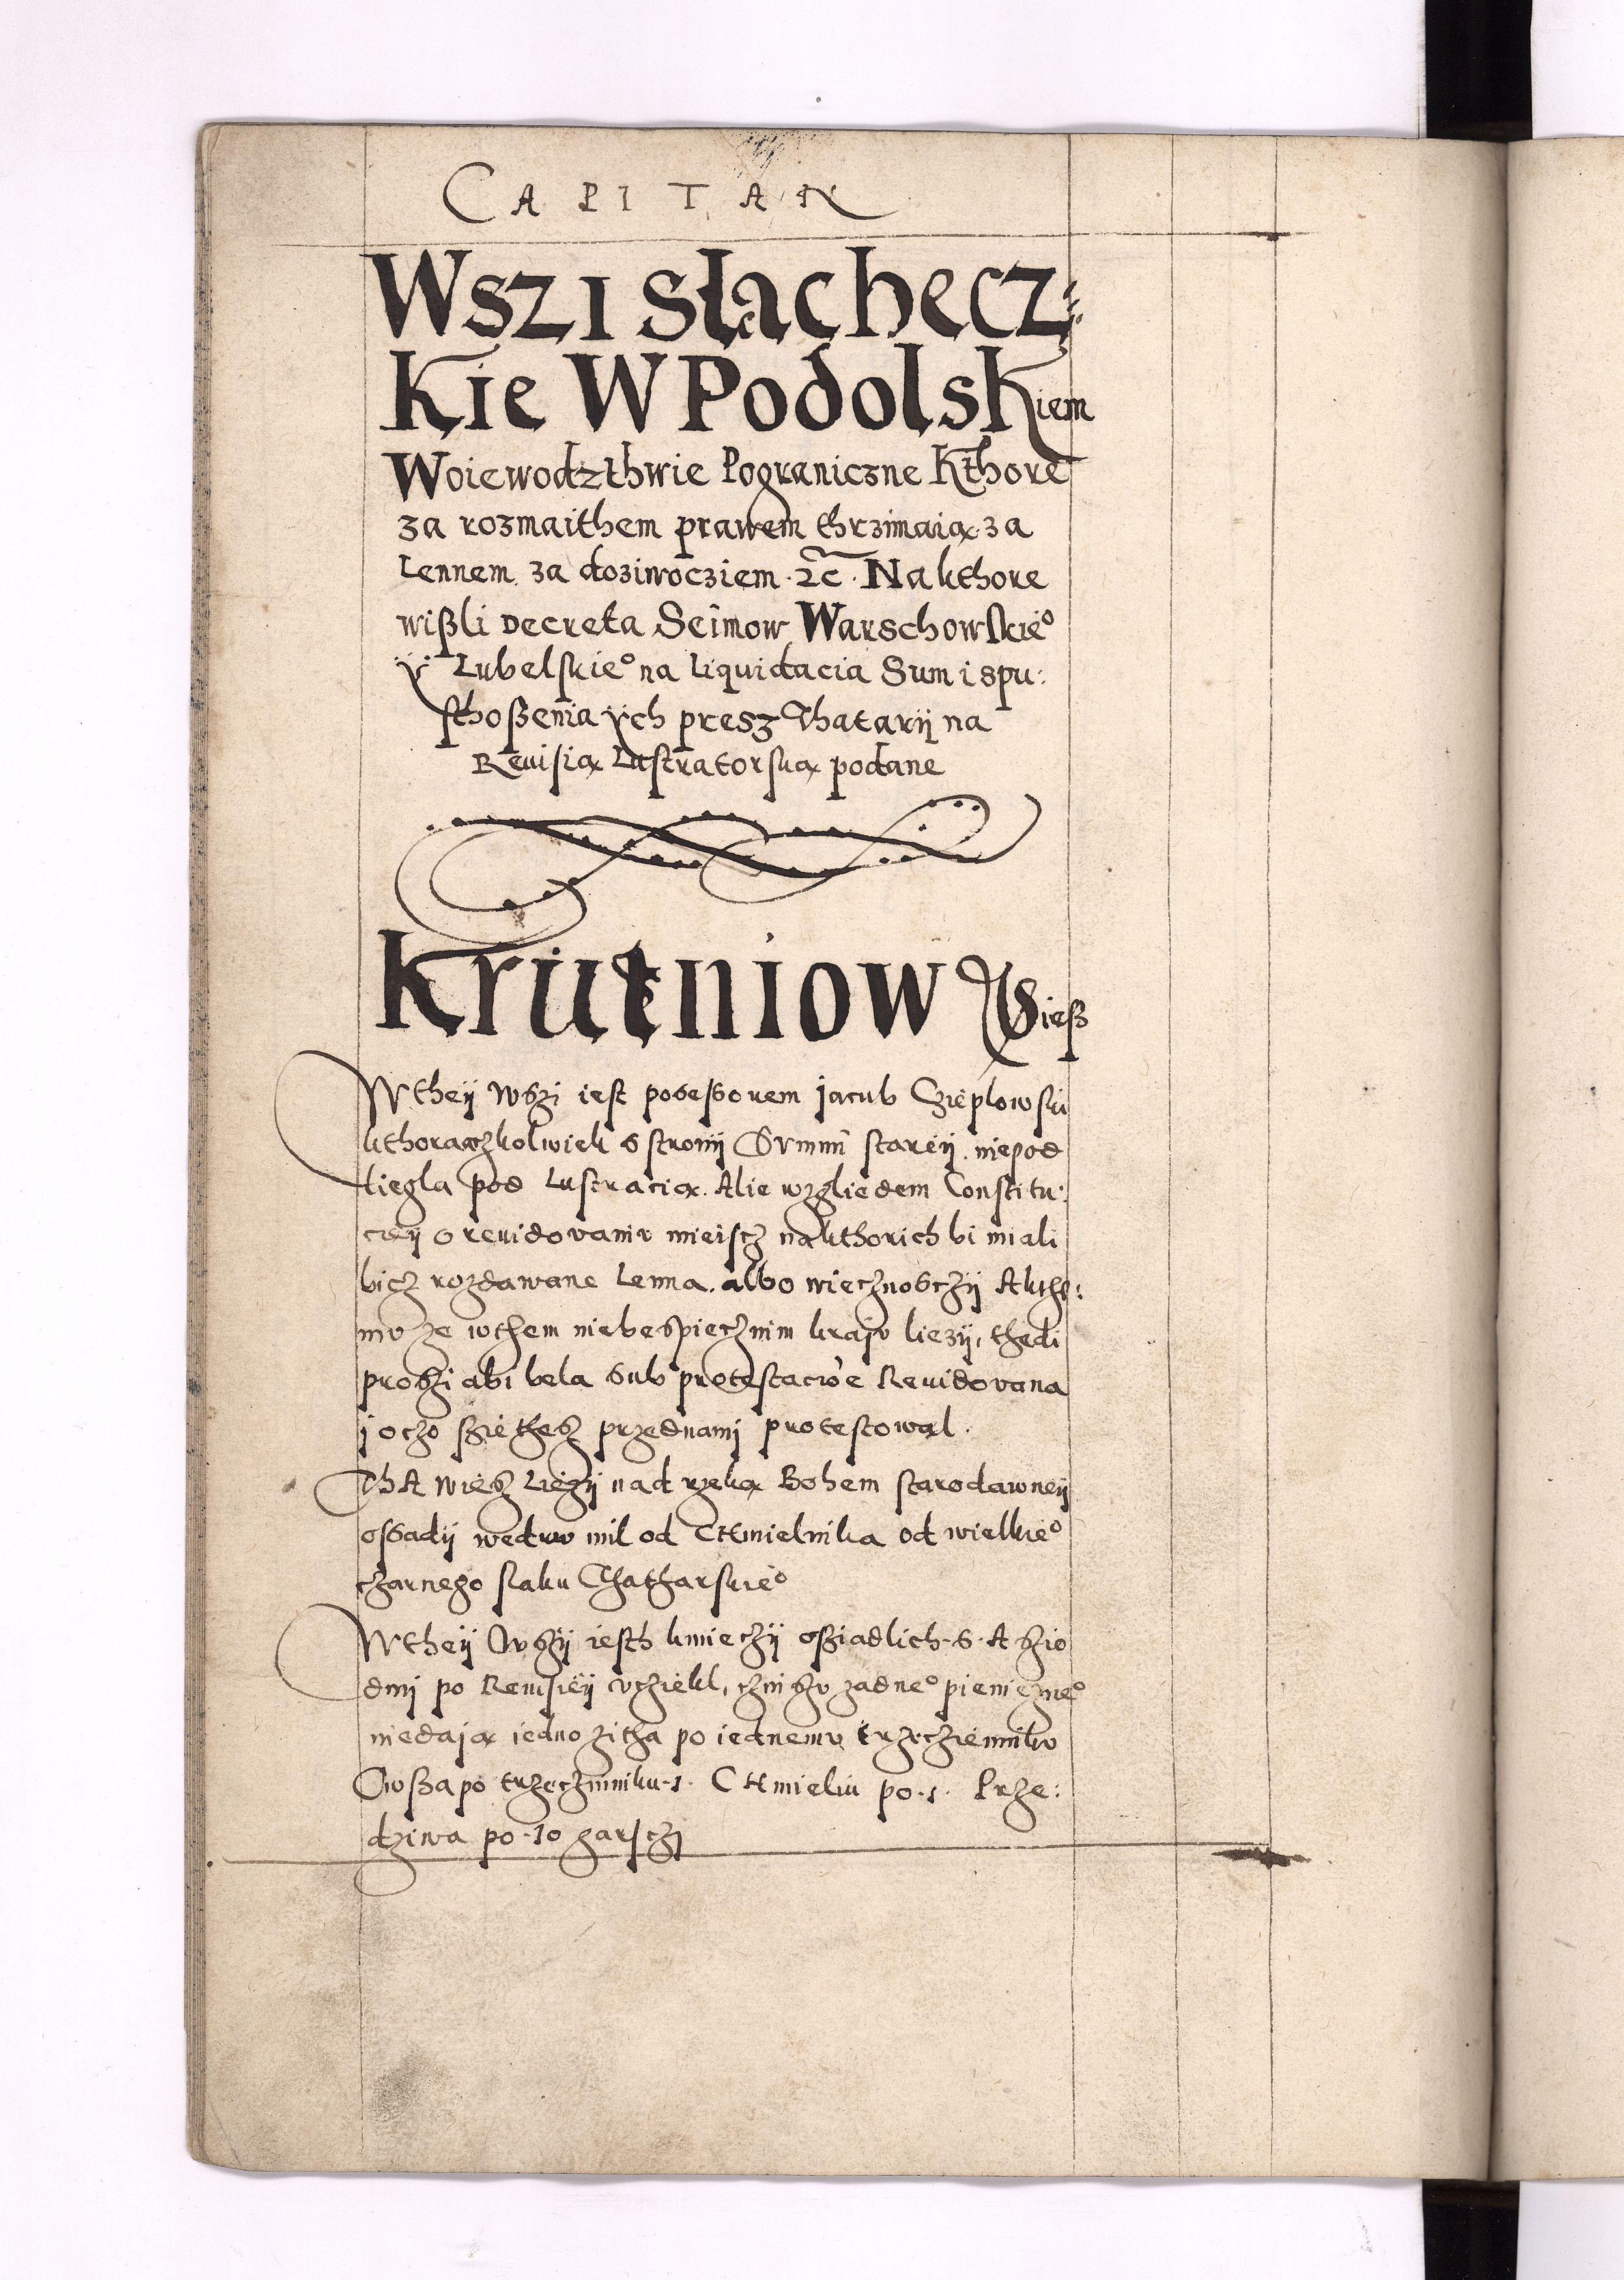 CAPITAN
Wszi słachecz=
Kie W Podolskiem
Woiewodzthwie Pograniczne Kthore
za rozmaithem prawem thrzimaią za
Lennem za doziwocziem · 2c · Na kthore
wißli Decreta Seimow Warschowskie°
ÿ Lubelskie° na Liquidacia Sum i spu:
sthoßenia ÿch presz Thatarÿ na
Reuisią Lustratorską podane
Krutniow Wieß
W theÿ wszi iest posessorem Jacub Czieplowski
kthoraczkolwiek s stronÿ Summ stareÿ niepod
liegla pod Lustracią. Alie wzgliedem Constitu:
cieÿ o reuidovaniv mieiscz na kthorich bi miali
bicz rozdawane Lenna. albo wiecznosczÿ A ktho:
mv ze wthem niebespiecznim kraiv liezÿ, thedi
proszi abi bela sub protestacioē Reuidovana
j oczo szie thesz przednami protestowal.
Tha wiesz Liezÿ nad rzeką Bohem starodawneÿ
ossadÿ wedwv mil od Chmielnika od wielkie°
czarnego slaku Thatharskie°
W theÿ Wszÿ iesth kmieczÿ osziadlich · 6 · A szio
dmj po Reuisieÿ vcziekl, czinszv zadne° pieniezne°
niedają iedno zitha po iednemv trzecziennikv
Owßa po trzeczinniku · 1 · Chmieliu po · 1 · Prze:
dziwa po · 10 garsczj